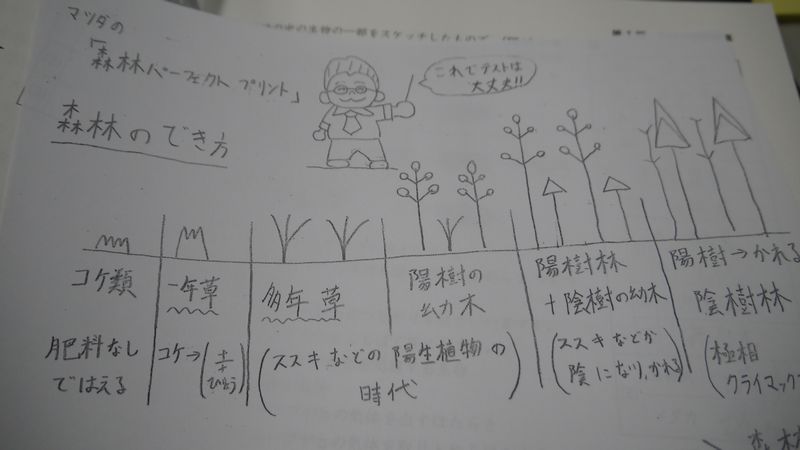 の一部をスケッチしたもので
マツダの
「森林パーフェクト プリント」
これでテストは
大丈夫!!
森林のでき方
コケ類
一年草
多年草
陽樹の
幼木
陽樹林
+陰樹の幼木
陽樹→かれる
陰樹林
肥料なし
ではえる
コケ→(土+ひりょう)
(ススキなどの陽生植物の
時代)
(ススキなどが
陰になり、かれる)
(極相
クライマック
森林